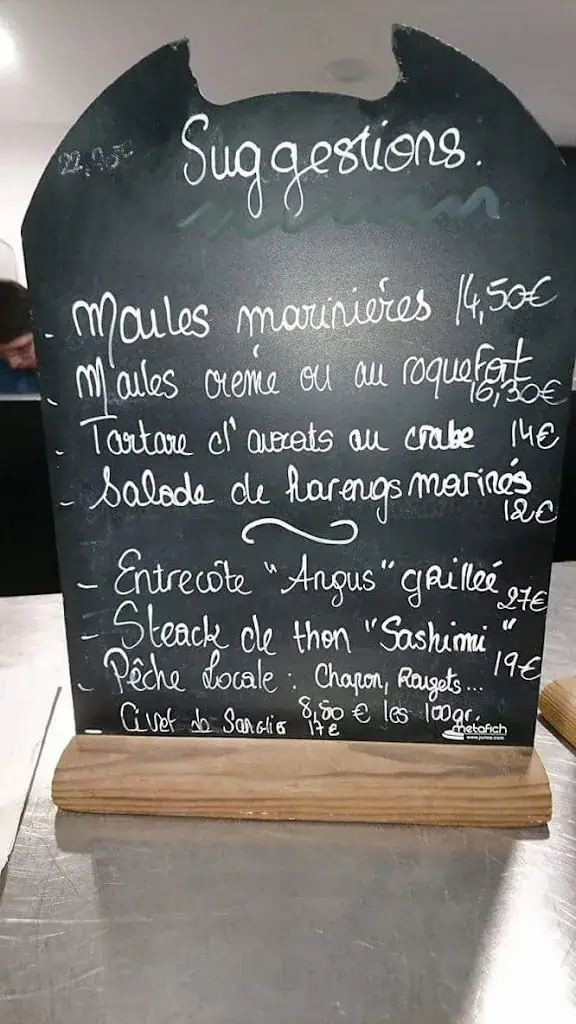 22,90€
Suggestions.
- Moules marinières 14,50€
- Moules crème ou au roquefort
16,30€
- Tartare d'avocats au crabe 14€
- Salade de harengs marinés
12€
- Entrecôte "Angus" grillée
27€
- Steack de thon "Sashimi"
19€
- Pêche Locale : Chapon, Rougets...
8,80 € les 100gr.
Civet de Sanglier 17€
metafich
www.jurine.com